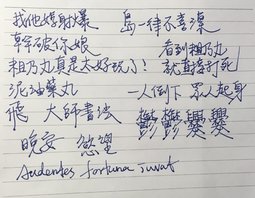 我他媽射爆 島一律不喜凜
幹破你娘 看到粗乃丸
粗乃丸真是太好玩了! 就直接打死
泥油藥丸 一人倒下 眾人起身
飛 大師書法 鬱鬱爨爨
晚安 慾望
Audentes fortuna iuvat